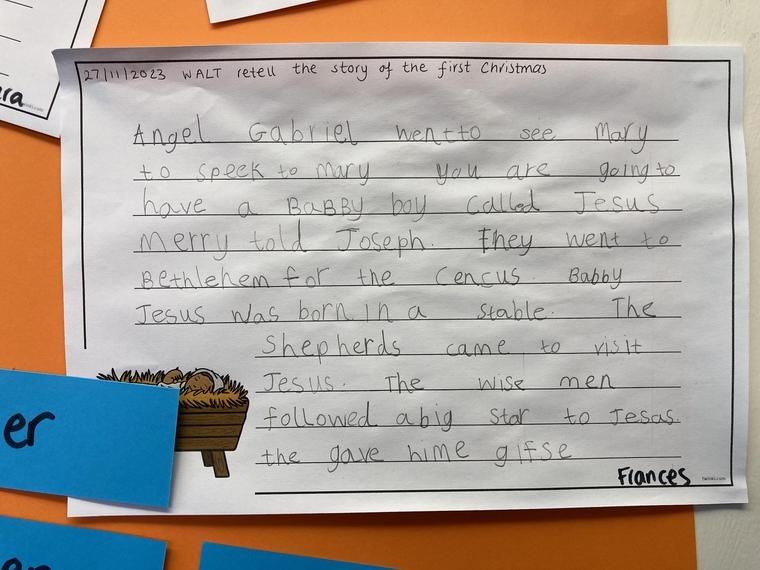 27/11/2023 WALT retell the story of the first Christmas
Angel Gabriel went to see Mary
to speek to Mary you are going to
have a BaBBy boy called Jesus
Merry told Joseph. They went to
Bethlehem for the Cencus. Babby
Jesus was born in a stable. The
Shepherds came to visit
Jesus. The wise men
followed a big star to Jesas.
the gave hime gifse
Frances
twinkl.com
era
er